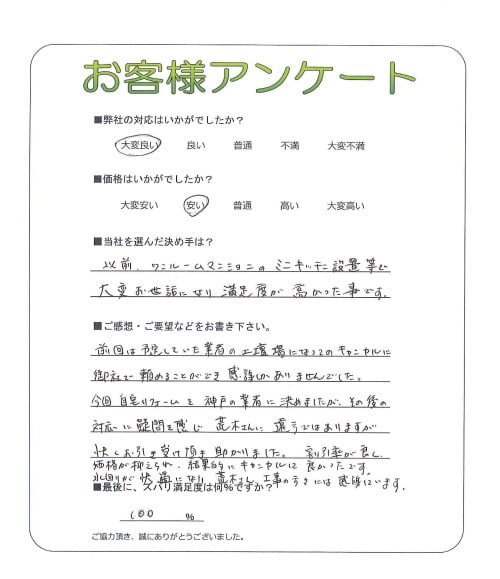 お客様アンケート
■弊社の対応はいかがでしたか？
大変良い 良い 普通 不満 大変不満
■価格はいかがでしたか？
大変安い 安い 普通 高い 大変高い
■当社を選んだ決め手は？
以前、ワンルームマンションのミニキッチン設置等で
大変お世話になり満足度が高かった事です。
■ご感想・ご要望などをお書き下さい。
前回は予定していた業者の工事場になってのキャンセルに
御社を頼めることができ感謝しかありませんでした。
今回自宅リフォームを神戸の業者に決めましたが、その後の
対応に疑問を感じ荒木さんに遠方ではありますが
快くお引き受け頂き助かりました。割引率が良く、
価格が抑えられ、結果的にキャンセルして良かったです。
水回りが快適になり荒木さん、工事の方々には感謝しています。
■最後に、ズバリ満足度は何％ですか？
100 %
ご協力頂き、誠にありがとうございました。